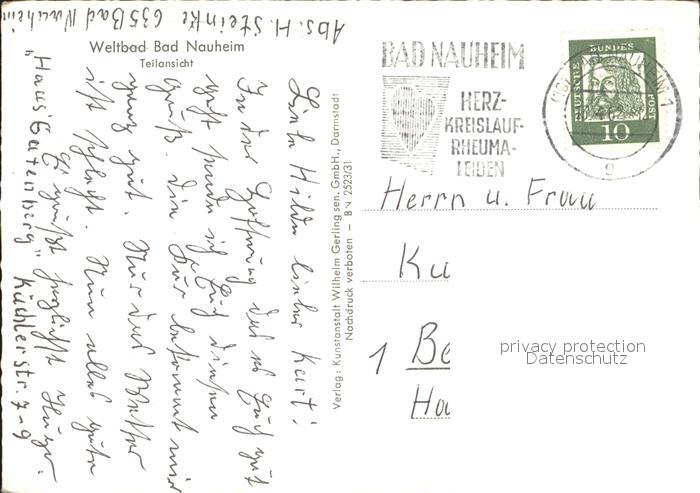 Abs. H. Steinke 635 Bad Nauheim
"Haus Gutenberg" Küchlerstr. 7-9
Weltbad Bad Nauheim
Teilansicht
Liebe Hilde lieber Kurt!
In der Hoffnung das es Euch gut
geht sende ich Euch diesen
Gruß. Die Kur bekommt mir
ganz gut. Nur das Wetter
ist schlecht. Nun alles gute
Es grüßt herzlichst Hugo.
Verlag: Kunstanstalt Wilhelm Gerling sen. GmbH., Darmstadt
Nachdruck verboten – BN 2523/31
BAD NAUHEIM
HERZ-
KREISLAUF-
RHEUMA-
LEIDEN
DEUTSCHE BUNDESPOST
10
Herrn u. Frau
Ku
1 Be
Ha
privacy protection
Datenschutz